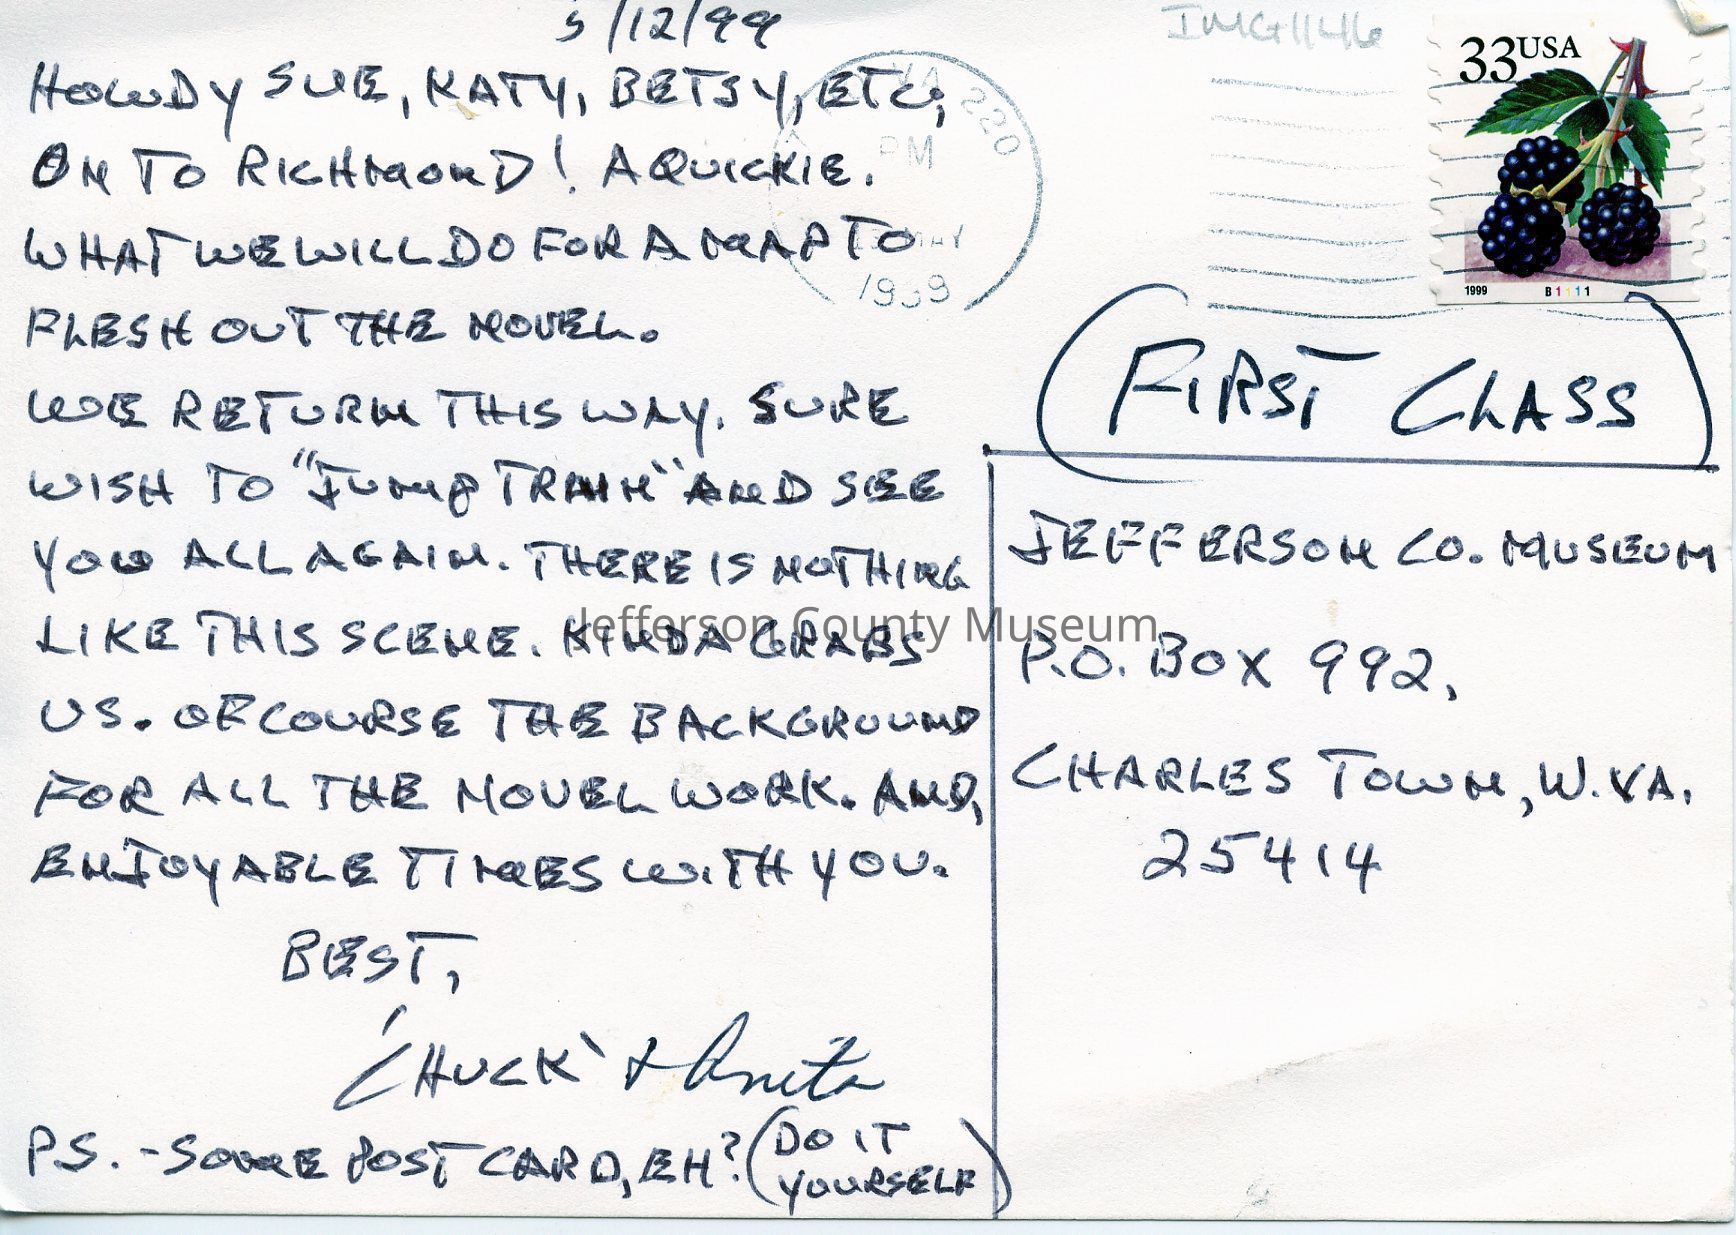 5/12/99
HOWDY SUE, KATY, BETSY, ETC,
ON TO RICHMOND! A QUICKIE.
WHAT WE WILL DO FOR A MAP TO
FLESH OUT THE NOVEL.
WE RETURN THIS WAY. SURE
WISH TO "JUMP TRAIN" AND SEE
YOU ALL AGAIN. THERE IS NOTHING
LIKE THIS SCENE. KINDA GRABS
US. OF COURSE THE BACKGROUND
FOR ALL THE NOVEL WORK. AND,
ENJOYABLE TIMES WITH YOU.
BEST,
'CHUCK' & Anita
P.S. - SOME POST CARD, EH? (DO IT
YOURSELF)
IMG1146
VA 220
PM
MAY
1999
33USA
1999 B1111
FIRST CLASS
JEFFERSON CO. MUSEUM
P.O. BOX 992,
CHARLES TOWN, W.VA.
25414
Jefferson County Museum